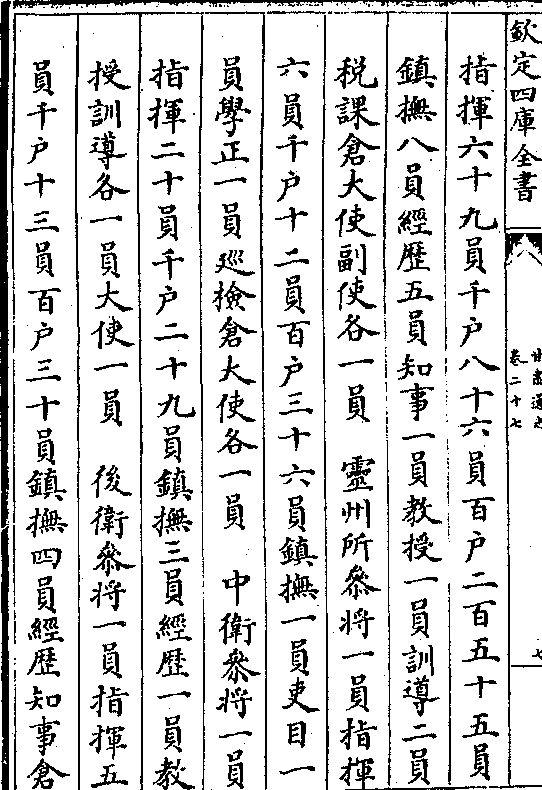 欽定四庫全書
甘肅通志
卷二十七
七
指揮六十九員千户八十六員百户二百五十五員
鎮撫八員經歷五員知事一員教授一員訓導二員
税課倉大使副使各一員　靈州所叅将一員指揮
六員千户十二員百户三十六員鎮撫一員吏目一
員學正一員廵檢倉大使各一員　中衛叅将一員
指揮二十員千户二十九員鎮撫三員經歷一員教
授訓導各一員大使一員　後衛叅将一員指揮五
員千户十三員百户三十員鎮撫四員經歷知事倉